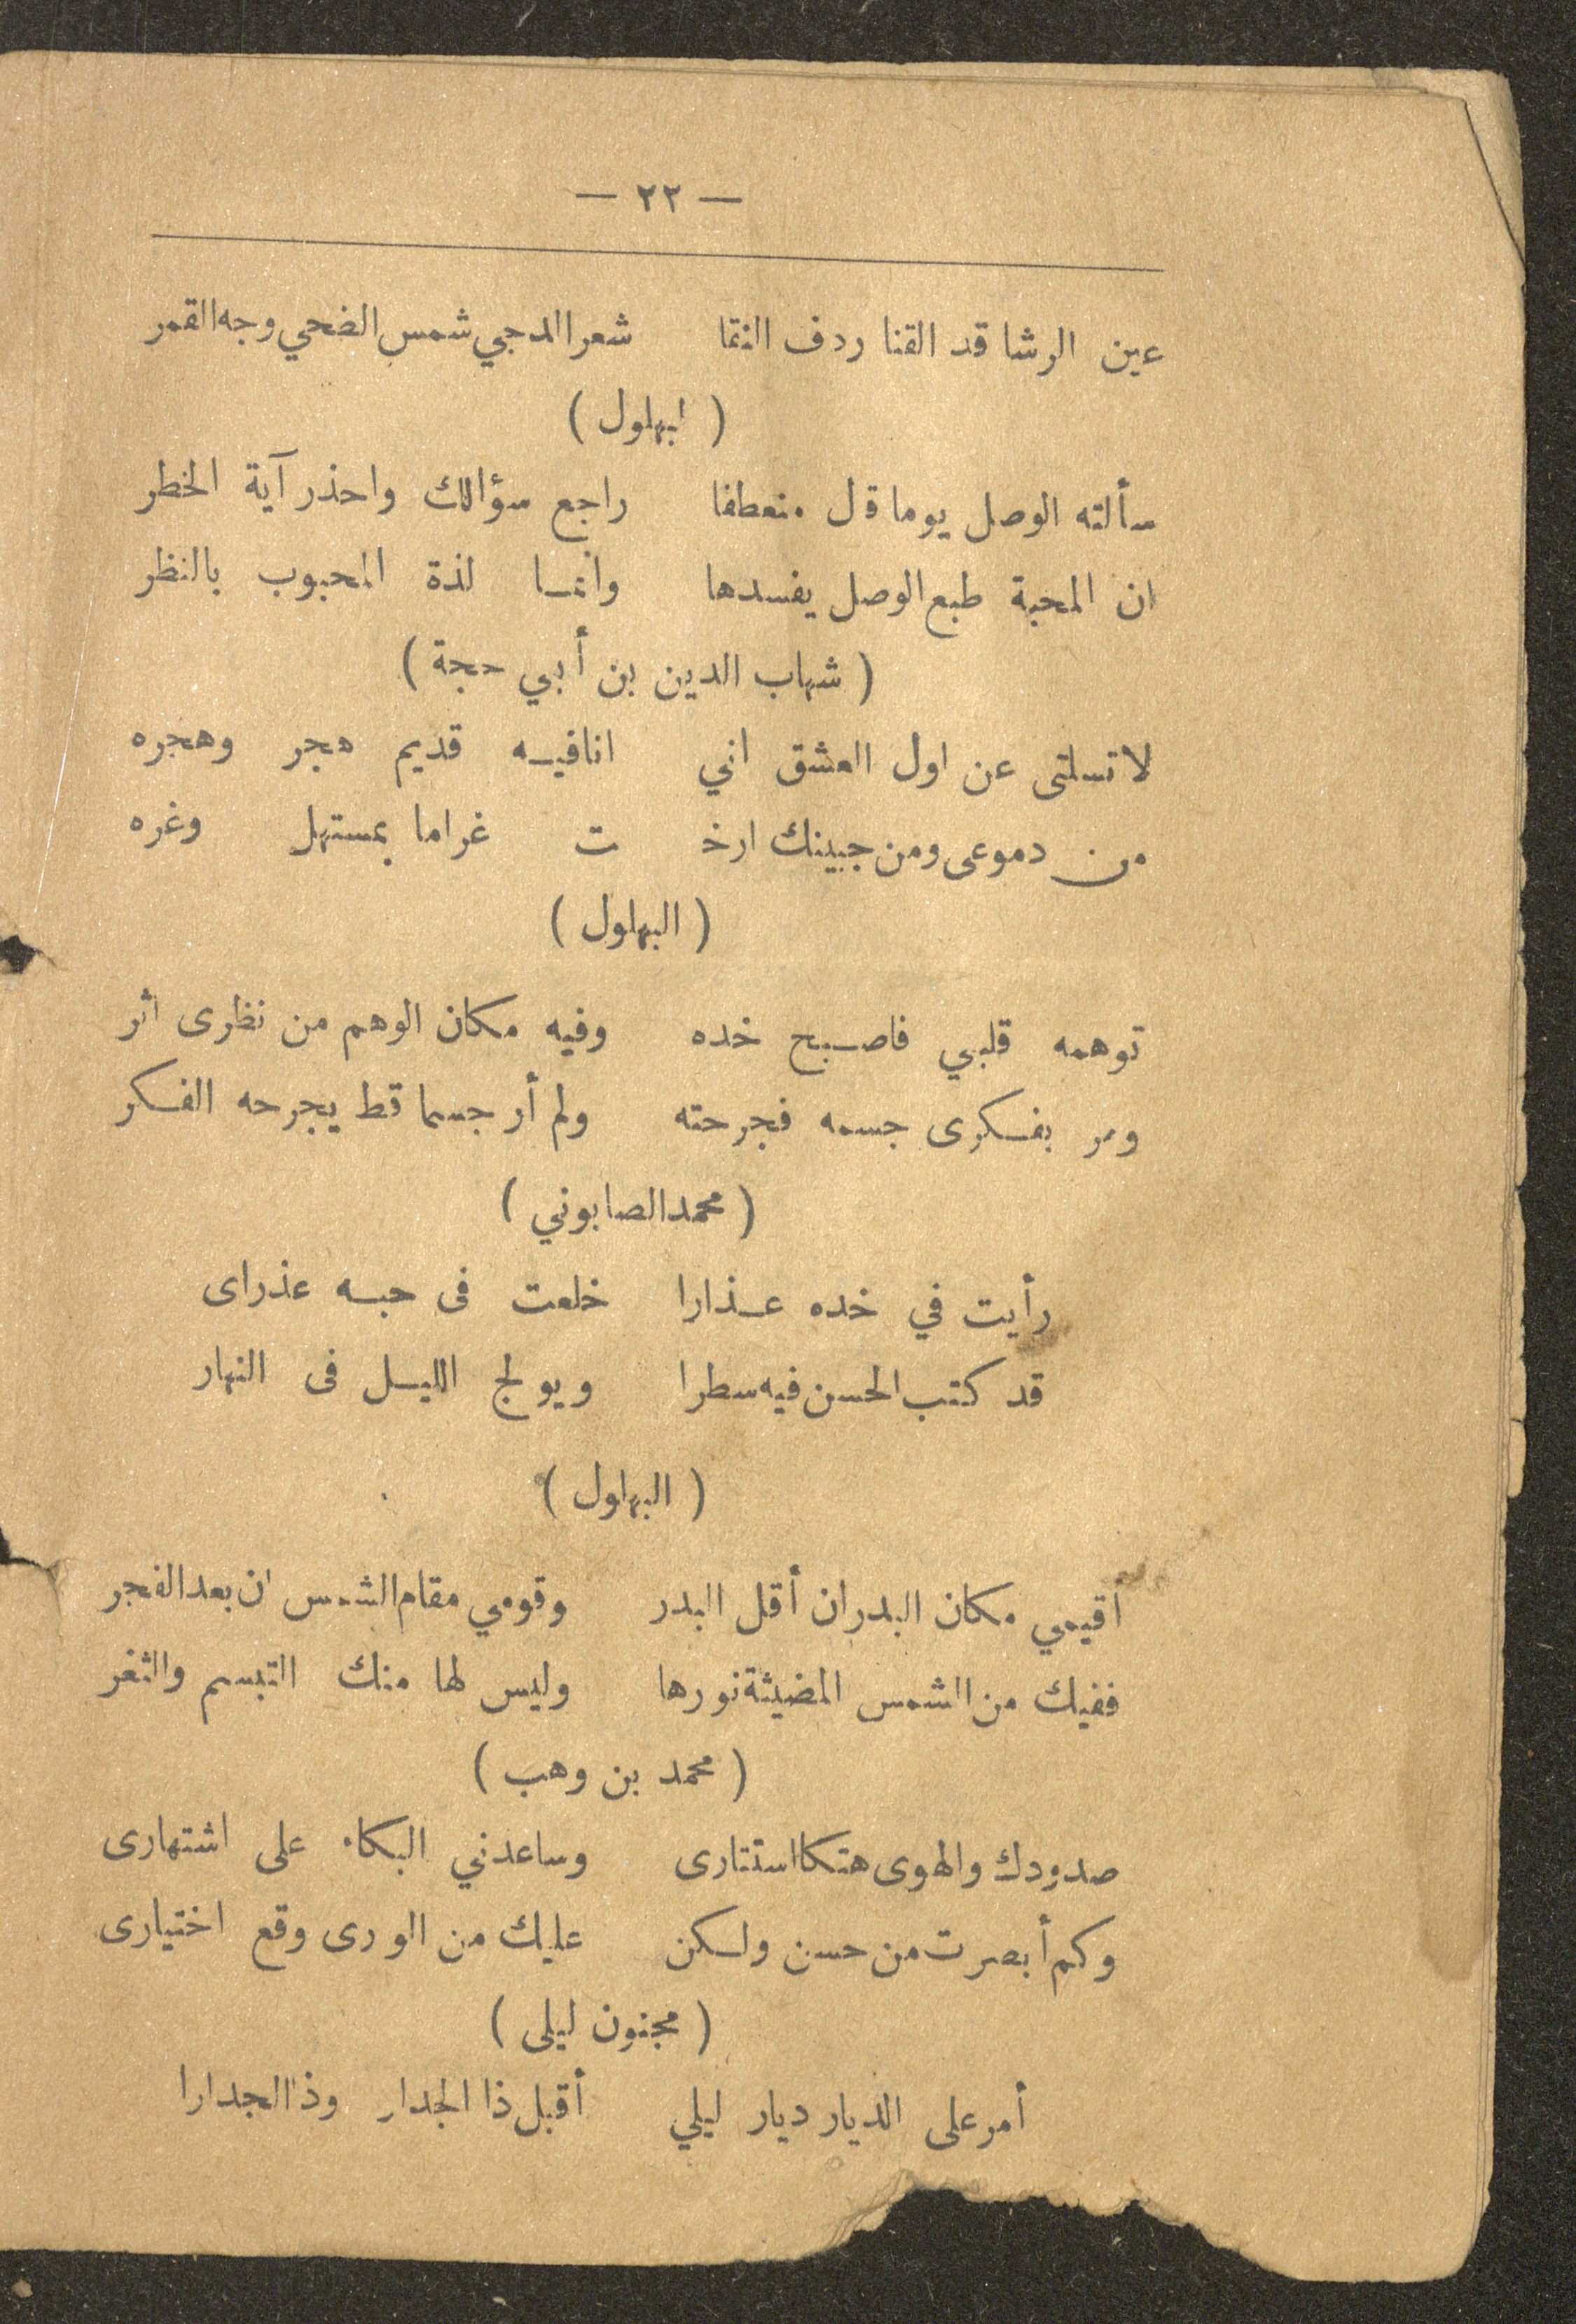 — ٢٢ —
عين الرشا قد القنا ردف النقا شعر الدجي شمس الضحي وجه القمر
( ابهلول )
سألته الوصل يوما قل منعطفا راجع سؤالك واحذر آية الخطر
ان المحبة طبع الوصل يفسدها وانما لذة المحبوب بالنظر
( شهاب الدين بن أبي حجة )
لا تسلنى عن اول العشق اني انا فيه قديم هجر وهجره
من دموعى ومن جبينك ارخ ت غراما بمستهل وغره
( البهلول )
توهمه قلبي فاصبح خده وفيه مكان الوهم من نظرى اثر
ومر بفكرى جسمه فجرحته ولم أر جسما قط يجرحه الفكر
( محمد الصابوني )
رأيت في خده عذارا خلعت فى حبه عذراى
قد كتب الحسن فيه سطرا ويولج الليل فى النهار
( البهلول )
أقيمي مكان البدر ان أقل البدر وقومي مقام الشمس ان بعد الفجر
ففيك من الشمس المضيئة نورها وليس لها منك التبسم والثغر
( محمد بن وهب )
صدودك والهوى هتكا استتارى وساعدني البكاء على اشتهارى
وكم أبصرت من حسن ولكن عليك من الورى وقع اختيارى
( مجنون ليلى )
أمر على الديار ديار ليلي أقبل ذا الجدار وذا الجدارا